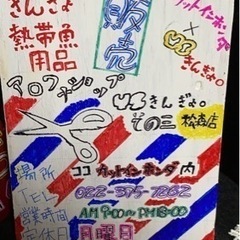 きんぎょ
熱帯魚
用品
販売
カットインホンダ
×
よろきんぎょ。
アロワナショップ
よろきんぎょ。
その三 松森店
ココ カットインホンダ内
場所
TEL 022-375-7262
営業時間 AM9:00〜PM18:00
定休日 月曜日